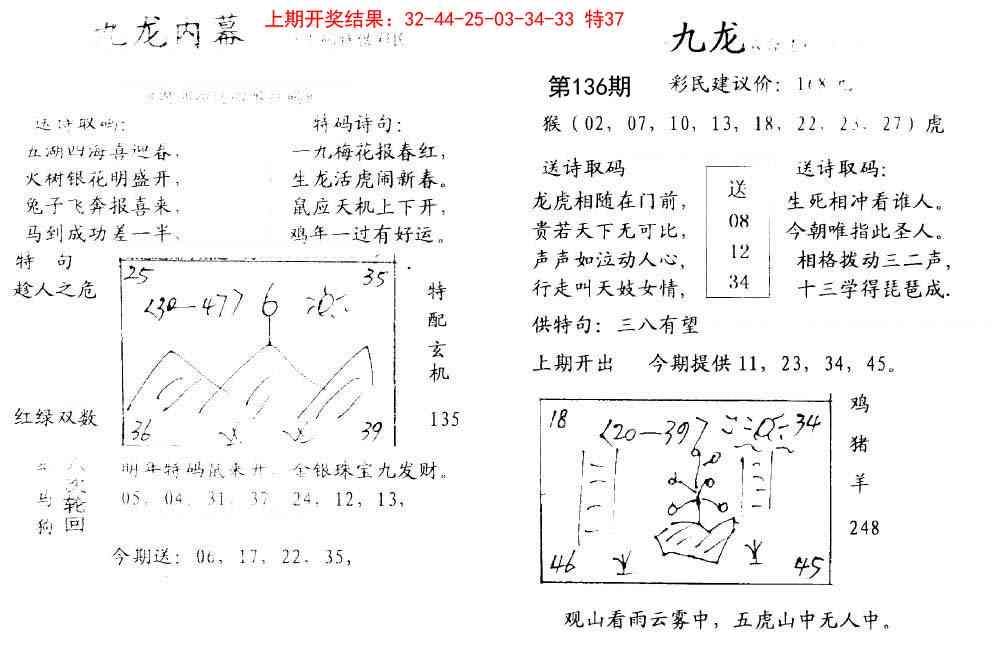 上期开奖结果：32-44-25-03-34-33 特37
九龙内幕
送诗取码：
五湖四海喜迎春，
火树银花明盛开，
兔子飞奔报喜来，
马到成功差一半、
特码诗句：
一九梅花报春红，
生龙活虎闹新春。
鼠应天机上下开，
鸡年一过有好运。
特 句
趁人之危
红绿双数
25
35
<30—47>
6
36
39
特
配
玄
机
135
明年特码鼠来开 金银珠宝九发财。
马
狗
轮
回
05，04，31，37 24，12，13，
今期送：06，17，22．35，
九龙
第136期
彩民建议价：
猴（02，07，10，13，18，22．23．27）虎
送诗取码
龙虎相随在门前，
贵若天下无可比，
声声如泣动人心，
行走叫天妓女情，
送
08
12
34
送诗取码：
生死相冲看谁人。
今朝唯指此圣人。
相格拨动三二声，
十三学得琵琶成.
供特句：三八有望
上期开出 今期提供11，23，34，45。
18
<20—397
34
46
45
鸡
猪
羊
248
观山看雨云雾中，五虎山中无人中。